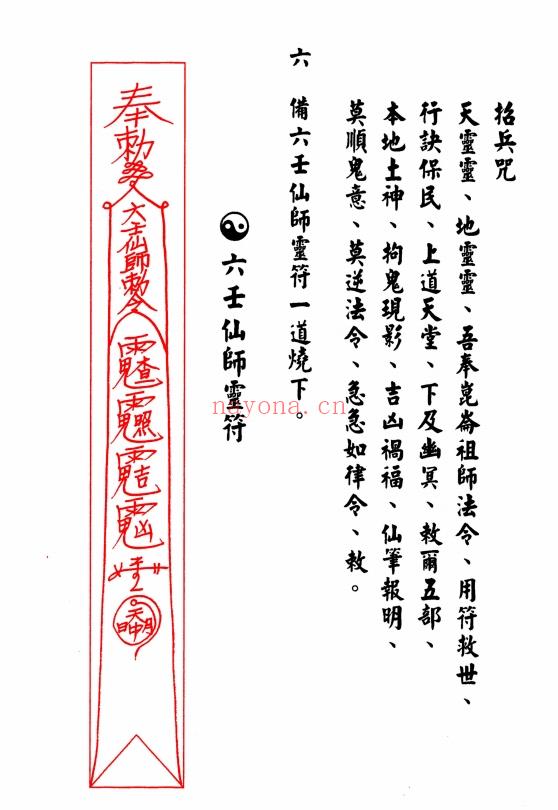 招兵咒
天靈靈、地靈靈、吾奉崑崙祖師法令、用符救世、
行訣保民、上道天堂、下及幽冥、敕爾五部、
本地土神、拘鬼現影、吉凶禍福、仙筆報明、
莫順鬼意、莫逆法令、急急如律令、敕。
六　備六壬仙師靈符一道燒下。
六壬仙師靈符
奉勅
六壬仙師勅令
nayona.cn